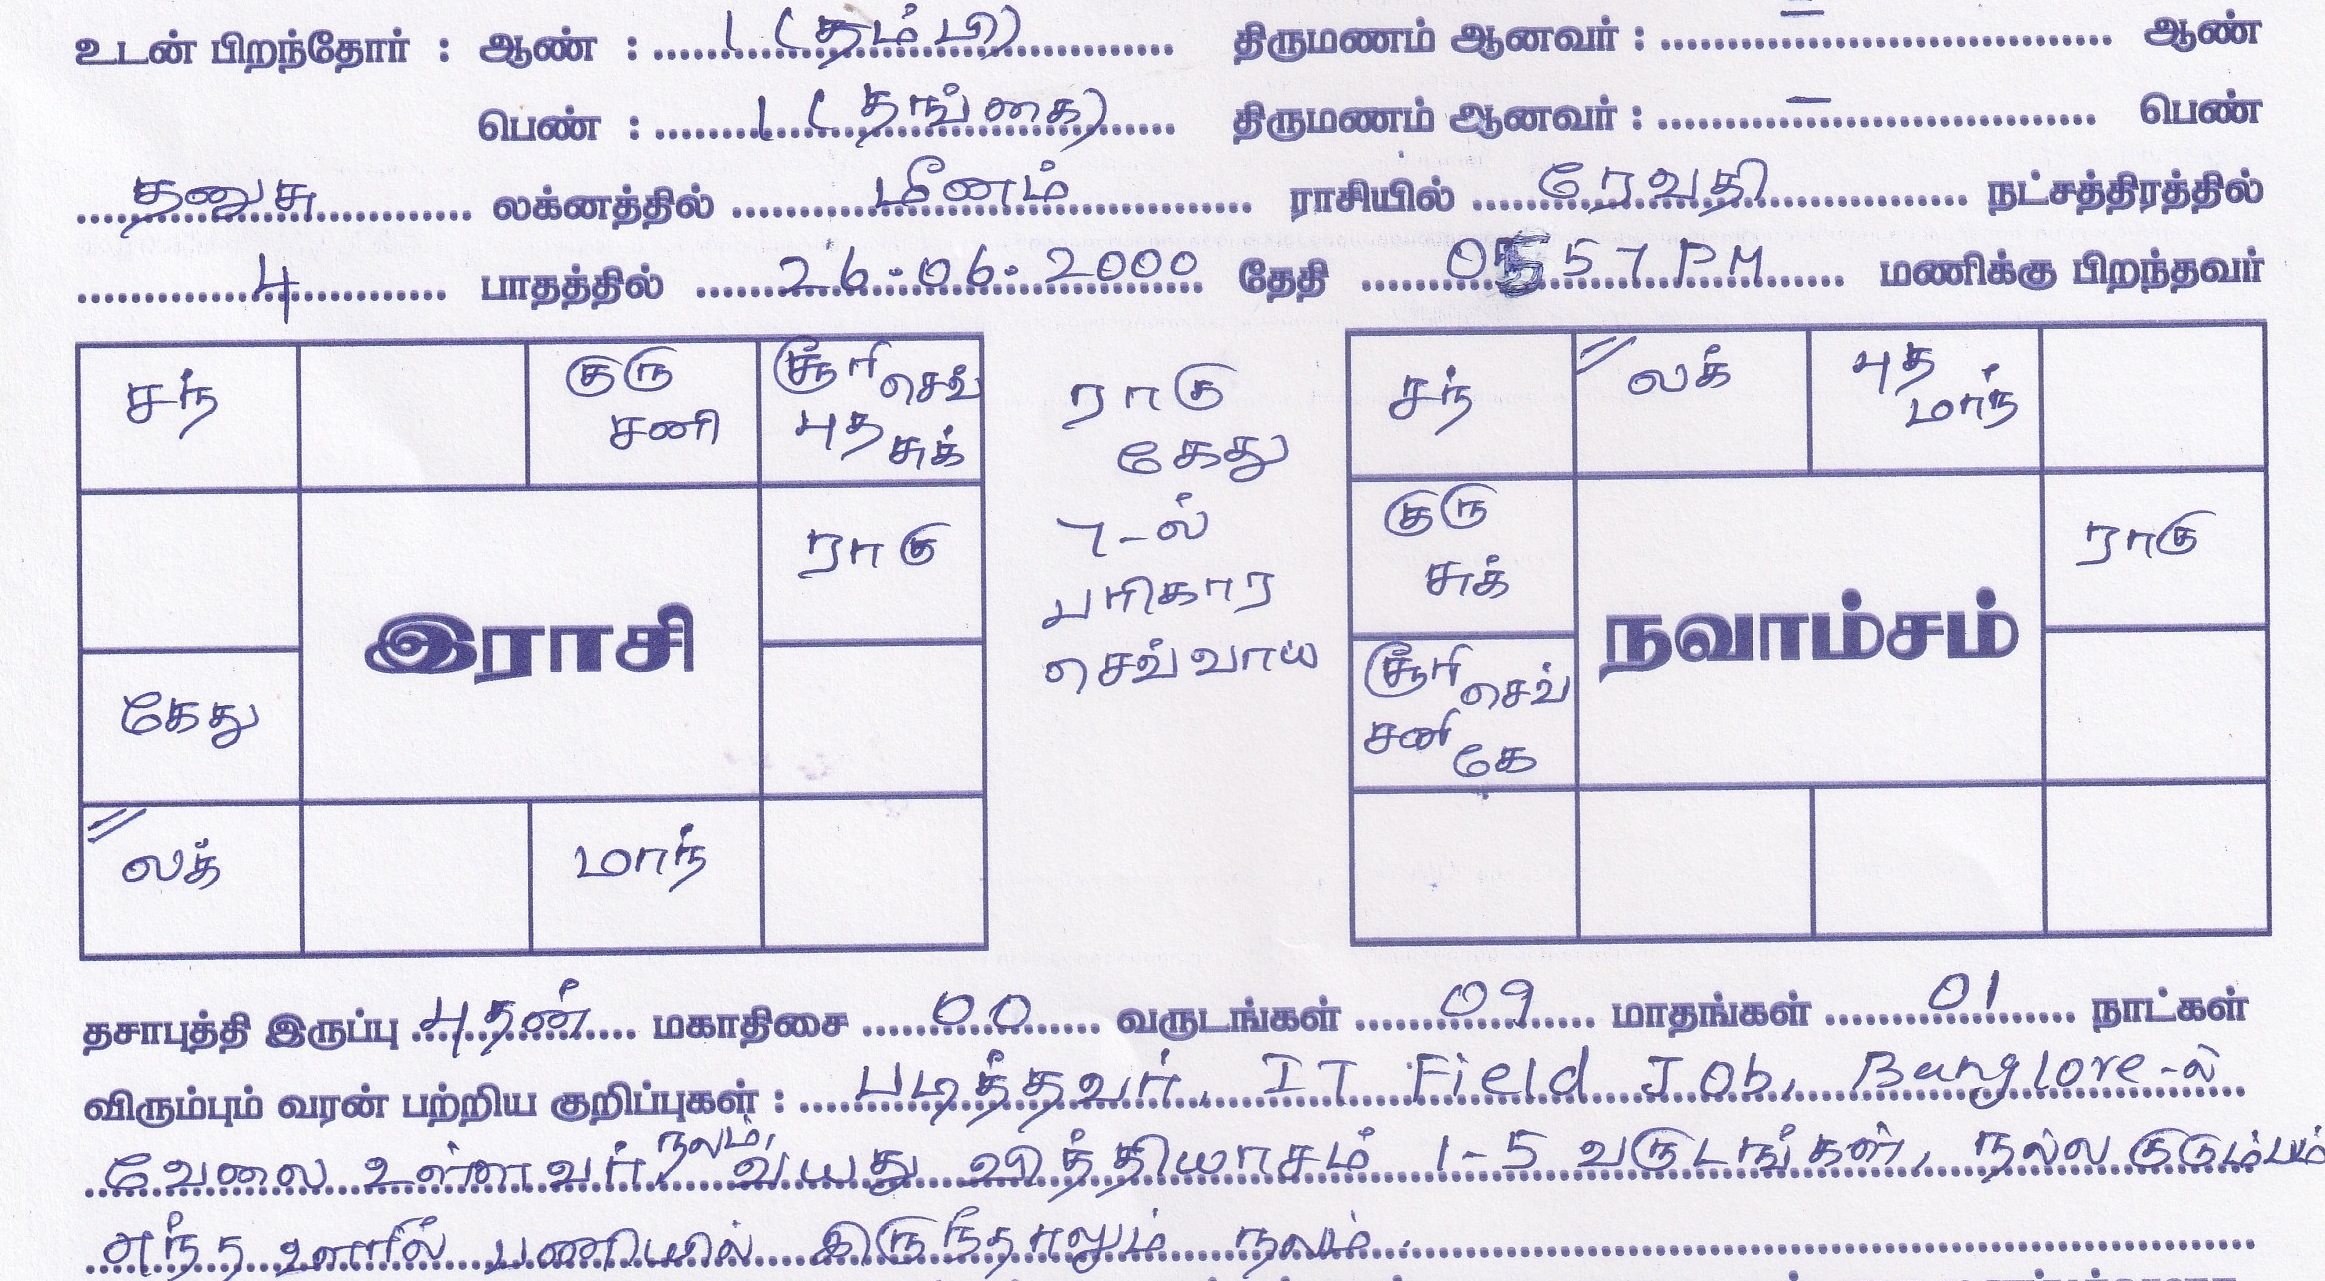 உடன் பிறந்தோர் : ஆண் : 1 (தம்பி) திருமணம் ஆனவர் : — ஆண்
பெண் : 1 (தங்கை) திருமணம் ஆனவர் : — பெண்
தனுசு லக்னத்தில் மீனம் ராசியில் ரேவதி நட்சத்திரத்தில்
4 பாதத்தில் 26.06.2000 தேதி 05 57 PM மணிக்கு பிறந்தவர்
சந்
குரு
சனி
சூரி செவ்
புத சுக்
ராகு
கேது
இராசி
லக்
மாந்
ராகு
கேது
7-ல்
பரிகார
செவ்வாய்
சந்
லக்
புத
மாந்
குரு
சுக்
ராகு
நவாம்சம்
சூரி செவ்
சனி கே
தசாபுத்தி இருப்பு புதன் மகாதிசை 00 வருடங்கள் 09 மாதங்கள் 01 நாட்கள்
விரும்பும் வரன் பற்றிய குறிப்புகள் : படித்தவர், IT Field Job, Banglore-ல்
வேலை உள்ளவர் நலம், வயது வித்தியாசம் 1-5 வருடங்கள், நல்ல குடும்பம்
எந்த ஊரில் பணியில் இருந்தாலும் நலம்.